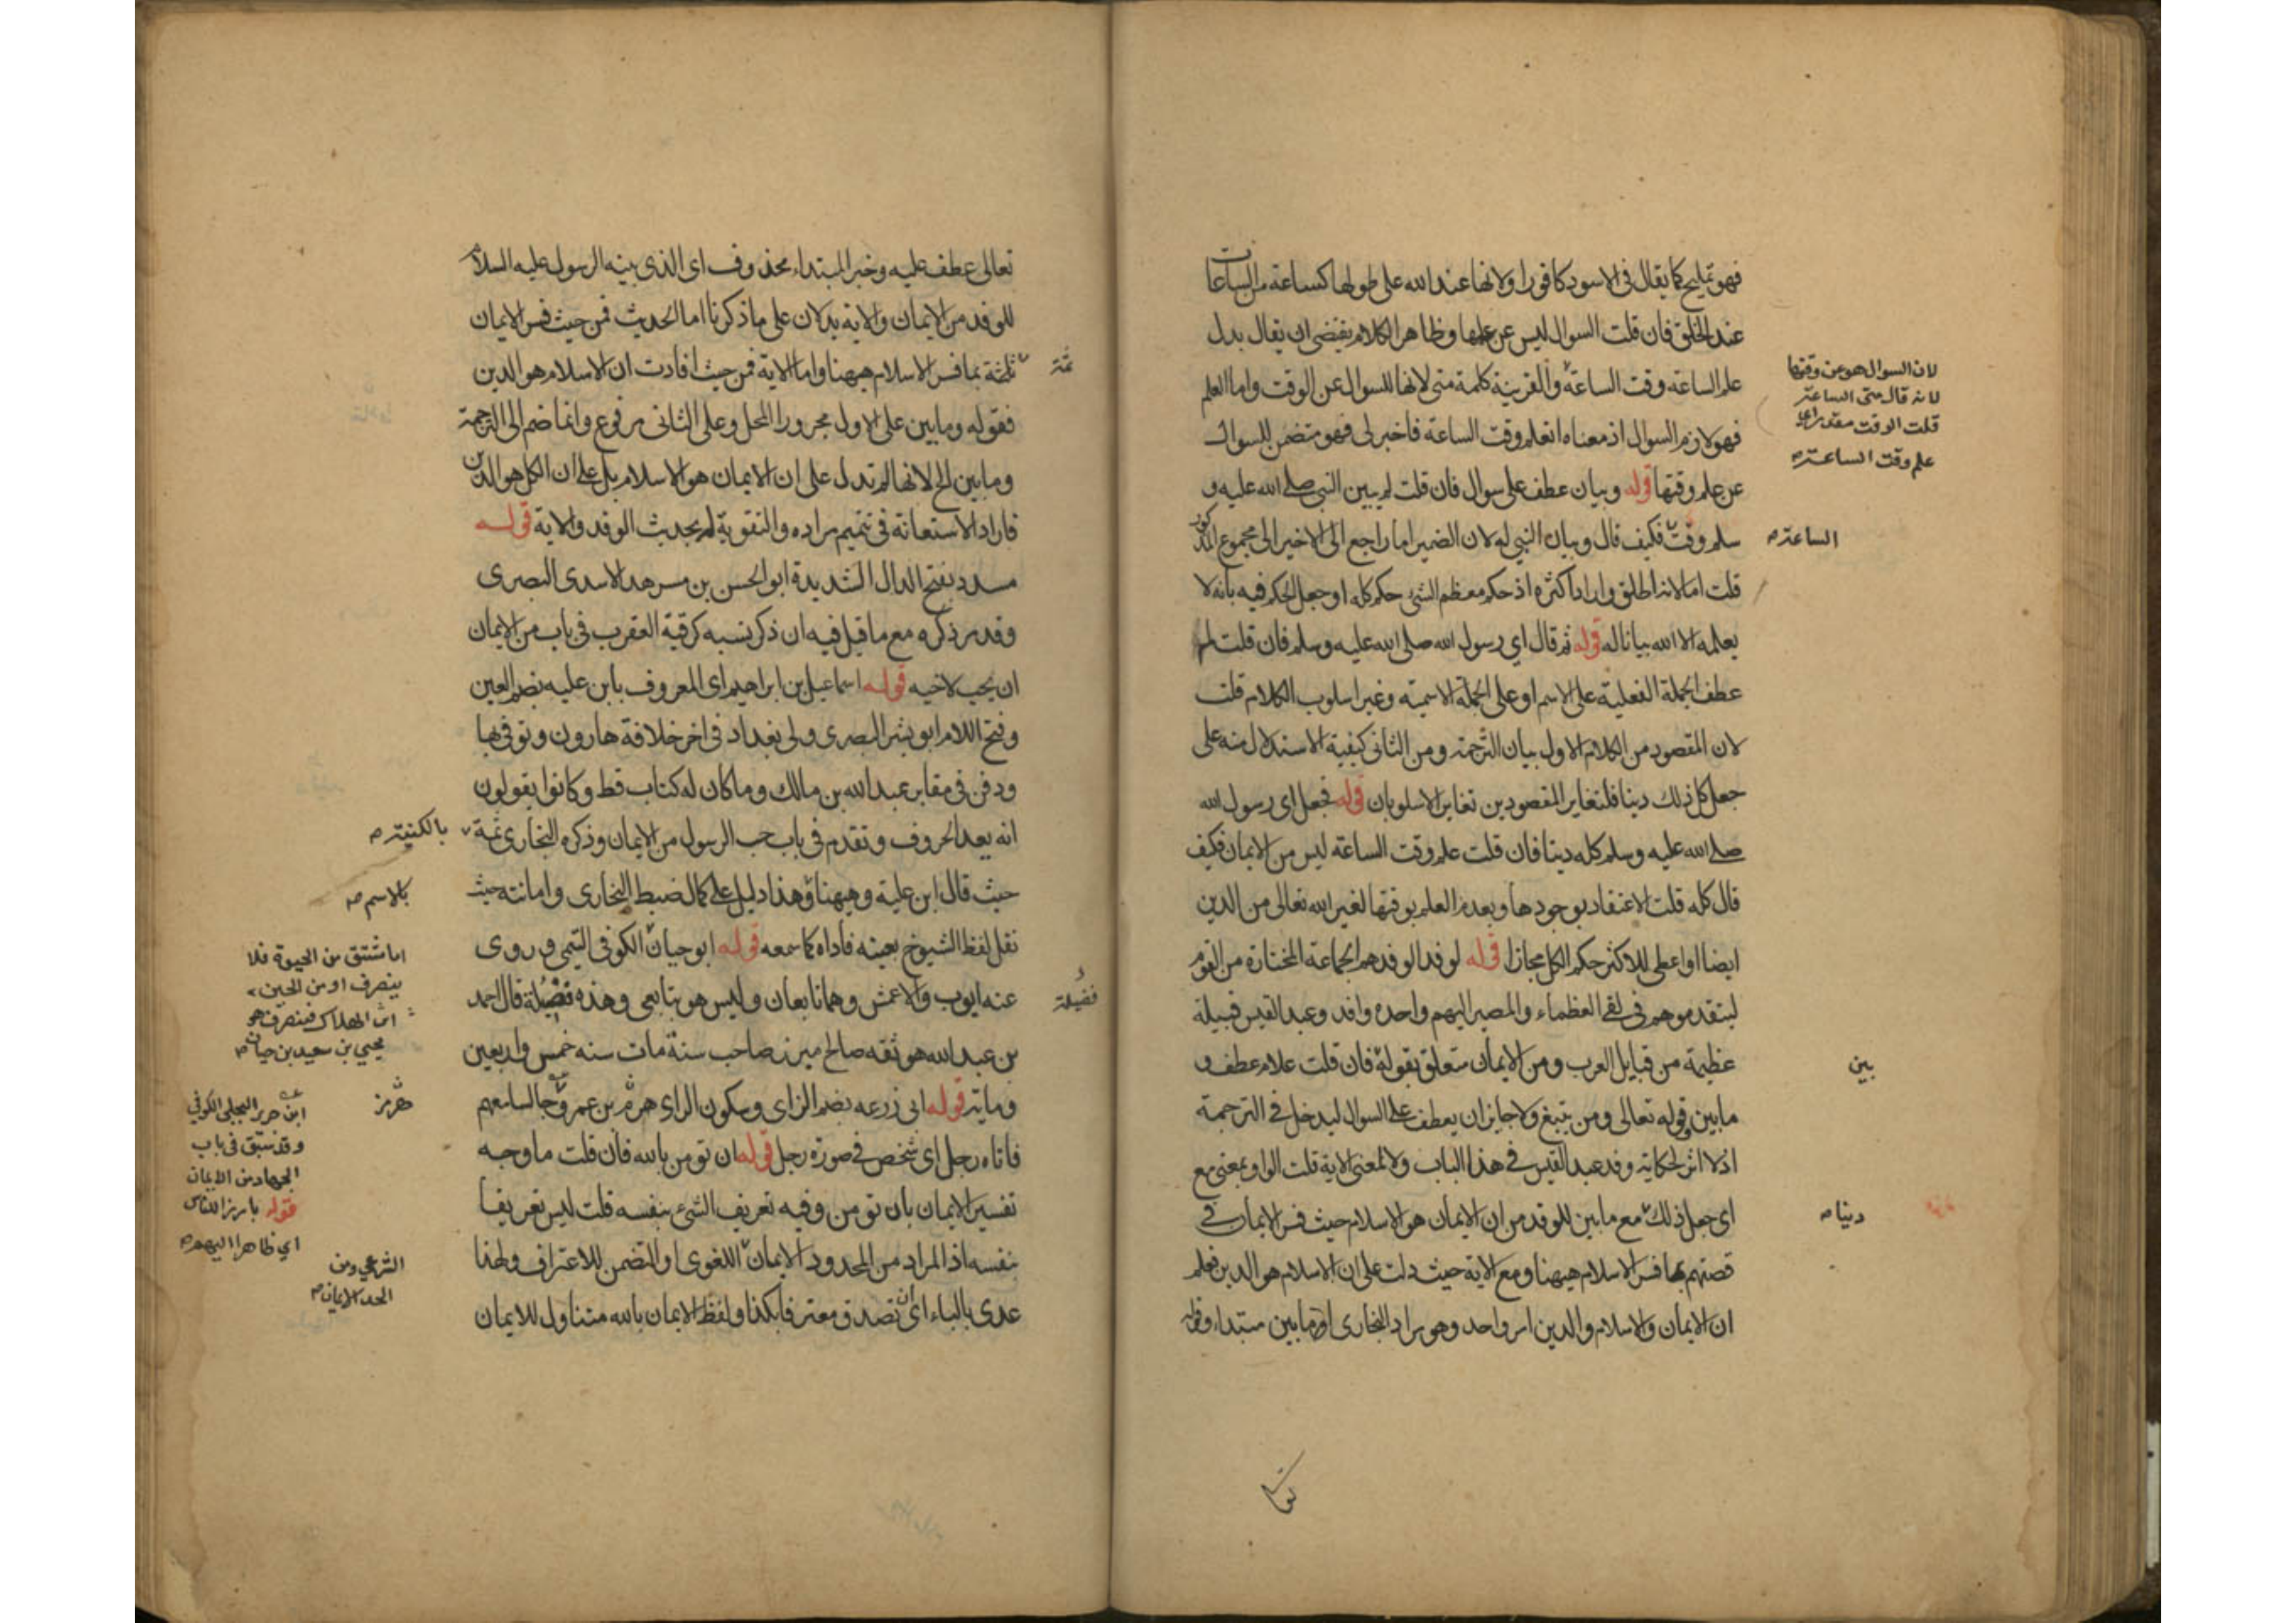 فهو تمليح كما يقال فى الاسود كافورا ولانها عند الله على طولها كساعة من الساعات
عند الخلق فان قلت السوال ليس عن علمها وظاهر الكلام يقتضى ان يقال بدل
علم الساعة وقت الساعة والقرينة كلمة متى لانها للسوال عن الوقت واما العلم
فهو لازم السوال اذ معناه اتعلم وقت الساعة فاخبر لى فهو متضمن للسوال
عن علم وقتها قوله وبيان عطف على سوال فان قلت لم يبين النبى صلى الله عليه و
سلم وقت فكيف قال وبيان النبي له لان الضمير اما راجع الى الاخير الى مجموع المذكور
قلت اما لانه اطلق واراد اكثره اذ حكم معظم الشئ حكم كله او جعل الحكم فيه بانه لا
يعلمه الا الله بيانا له قوله ثم قال اي رسول الله صلى الله عليه وسلم فان قلت لم
عطف الجملة الفعلية على الاسم او على الجملة الاسمية وغير اسلوب الكلام قلت
لان المقصود من الكلام الاول بيان الترجمة ومن الثانى كيفية الاستدلال منه على
جعل كل ذلك دينا فلتغاير المقصودين تغاير الاسلوبان قوله فجعل اى رسول الله
صلى الله عليه وسلم كله دينا فان قلت علم وقت الساعة ليس من الايمان فكيف
قال كله قلت الاعتقاد بوجودها وبعدم العلم بوقتها لغير الله تعالى من الدين
ايضا او اعطى للاكثر حكم الكل مجازا قوله لوفد الوفد هم الجماعة المختارة من القوم
ليتقدموهم فى لقى العظماء والمصير اليهم واحده وافد وعبد القيس قبيلة
عظيمة من قبايل العرب ومن الايمان متعلق بقوله فان قلت علام عطف و
مابين وقوله تعالى ومن يتبغ ولا جايز ان يعطف على السوال ليدخل في الترجمة
اذ لا اثر لحكاية وفد عبد القيس في هذا الباب ولا لمعنى الاية قلت الواو بمعنى مع
اى جعل ذلك مع مابين للوفد من ان الايمان هو الاسلام حيث فسر الايمان في
قصتهم بما فسر الاسلام هيهنا ومع الاية حيث دلت على ان الاسلام هو الدين فعلم
ان الايمان والاسلام والدين امر واحد وهو مراد البخارى او مابين مبتداء وقوله
لان السوال هو عن وقتها
لانه قال متى الساعة
قلت الوقت مقدر اي
علم وقت الساعة صح
الساعة صح
بين
دينا صح
تعالى عطف عليه وخبر المبتداء محذوف اى الذى بينه الرسول عليه السلام
للوفد من الايمان والاية يدلان على ما ذكرنا اما الحديث فمن حيث فسر الايمان
ثمة بما فسر الاسلام هيهنا واما الاية فمن حيث افادت ان الاسلام هو الدين
فقوله ومابين على الاول مجرور المحل وعلى الثانى مرفوع وانما ضم الى الترجمة
ومابين الخ لانها لم تدل على ان الايمان هو الاسلام بل على ان الكل هو الدين
فاراد الاستعانة فى تتميم مراده والتقوية له بحديث الوفد والاية قوله
مسدد بفتح الدال الشديدة ابو الحسن بن مسرهد الاسدى البصرى
وقد مر ذكره مع ما قيل فيه ان ذكر نسبه كرقية العقرب فى باب من الايمان
ان يحب لاخيه قوله اسماعيل بن ابراهيم اى المعروف بابن عليه بضم العين
وفتح اللام ابو بشر البصرى ولى بغداد فى اخر خلافة هارون وتوفى بها
ودفن فى مقابر عبد الله بن مالك وما كان له كتاب قط وكانوا يقولون
انه يعد الحروف وتقدم فى باب حب الرسول من الايمان وذكره البخارى ثمة
حيث قال ابن علية وهيهنا وهذا دليل على كمال ضبط البخارى وامانته حيث
نقل لفظ الشيوخ بعينه فاداه كما سمعه قوله ابو حيان الكوفى التيمى وروى
عنه ايوب والاعمش وهما تابعان وليس هو بتابعى وهذه فضيلة قال احمد
بن عبد الله هو ثقه صالح مبرز صاحب سنة مات سنه خمس واربعين
وماية قوله ابى زرعه بضم الزاى وسكون الراى هرم بن عمرو
فاتاه رجل اى شخص في صورة رجل قوله ان تومن بالله فان قلت ما وجه
تفسير الايمان بان تومن وفيه تعريف الشئ بنفسه قلت ليس تعريفا
بنفسه اذ المراد من المحدود الايمان اللغوى او المتضمن للاعتراف ولهذا
عدى بالباء اى ان تصدق معترفا بكذا ولفظ الايمان بالله متناول للايمان
ثمة
فضيلة
بالكنية صح
بالاسم صح
اما مشتق من الحيوة فلا
ينصرف او من الحين
اى الهلاك فينصرف هو
يحيي بن سعيد بن حيان صح
هرمز
ابن جرير البجلى الكوفي
وقد سبق فى باب
الجهاد من الايمان
قوله بارزا للناس
اي ظاهرا اليهم صح
الشرعي ومن
الحد الايمان صح